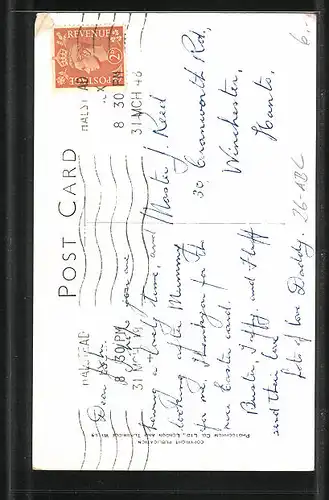 POST CARD
HALSTEAD
8 30 PM
31 MCH 48
HALSTEAD
8 30 PM
POSTAGE
REVENUE
2D
Dear John,
I hope you are
having a lovely time, and
looking after Mummy
for me. Thankyou for the
nice Easter card.
Buster, Jeffy and Fluff
send their love
Lots of love Daddy.
Master J. Reed
30 Cranworth Rd,
Winchester,
Hants.
26-ABC
COPYRIGHT PUBLICATION
PHOTOCHROM CO. LTD., LONDON AND TUNBRIDGE WELLS